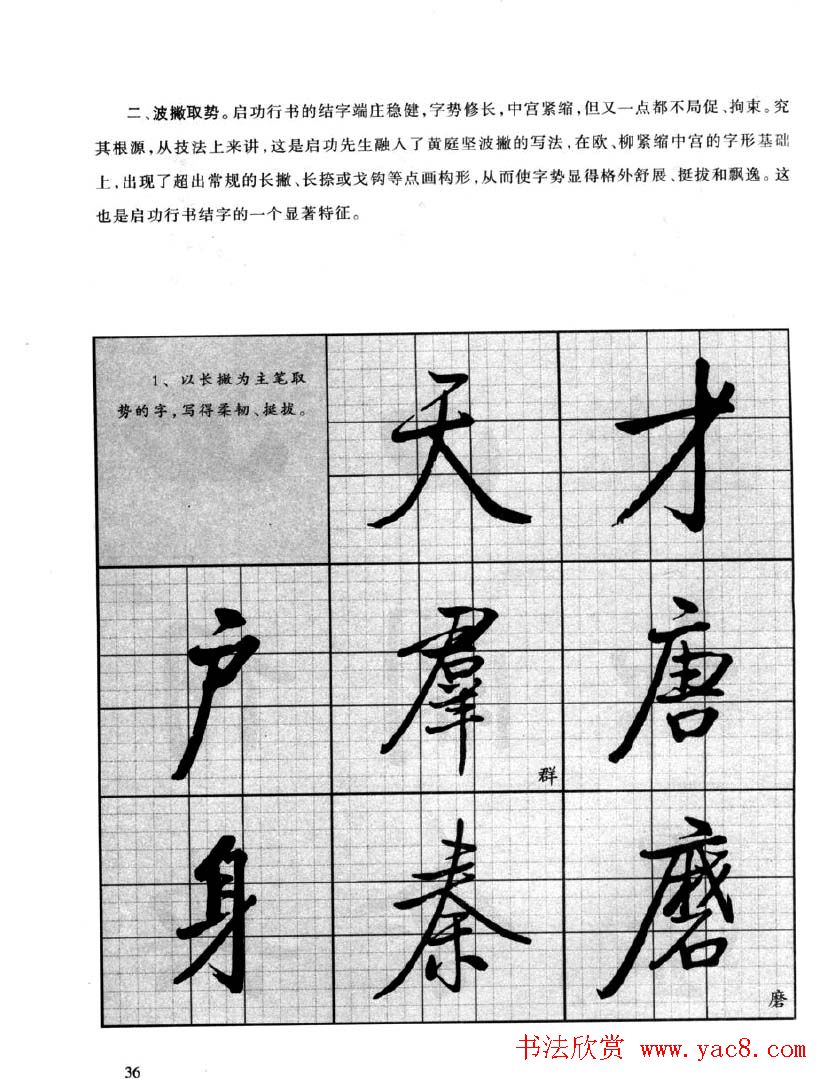 二、波撇取势。启功行书的结字端庄稳健,字势修长,中宫紧缩,但又一点都不局促、拘束。究
其根源,从技法上来讲,这是启功先生融入了黄庭坚波撇的写法,在欧、柳紧缩中宫的字形基础
上,出现了超出常规的长撇、长捺或戈钩等点画构形,从而使字势显得格外舒展、挺拔和飘逸。这
也是启功行书结字的一个显著特征。
1、以长撇为主笔取
势的字,写得柔韧、挺拔。
天 才
户 羣 唐
群
身 秦 磨
磨
书法欣赏 www.yac8.com
36